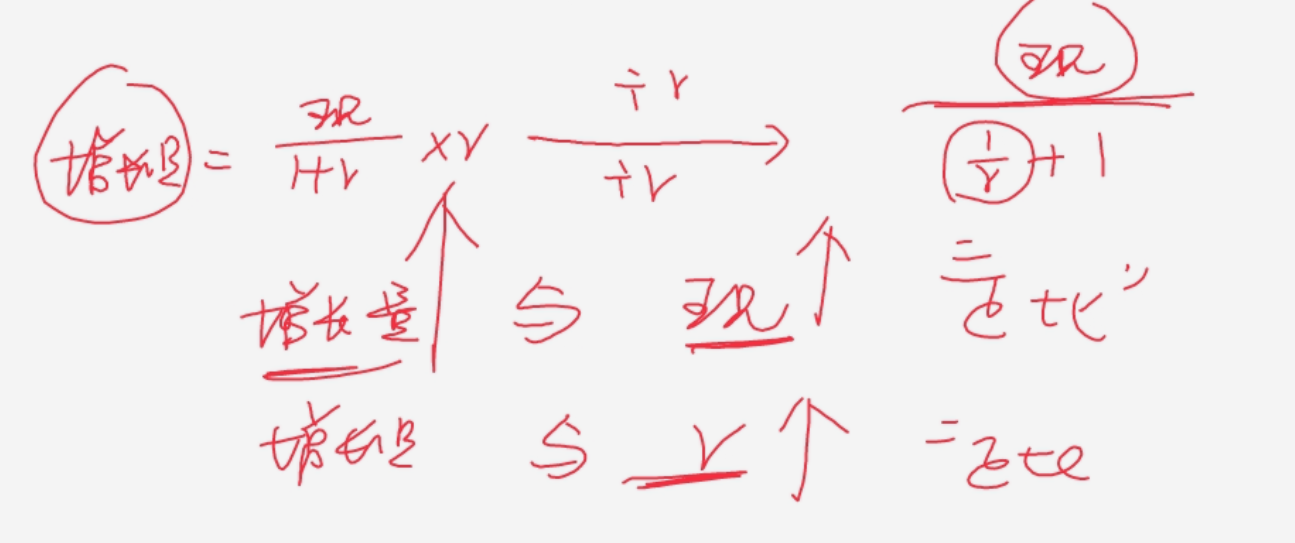 增长量 = 现/1+r ×r ÷r/÷r → 现/(1/r + 1)
增长量↑ 与 现↑ 正比
增长量 与 r↑ 正比